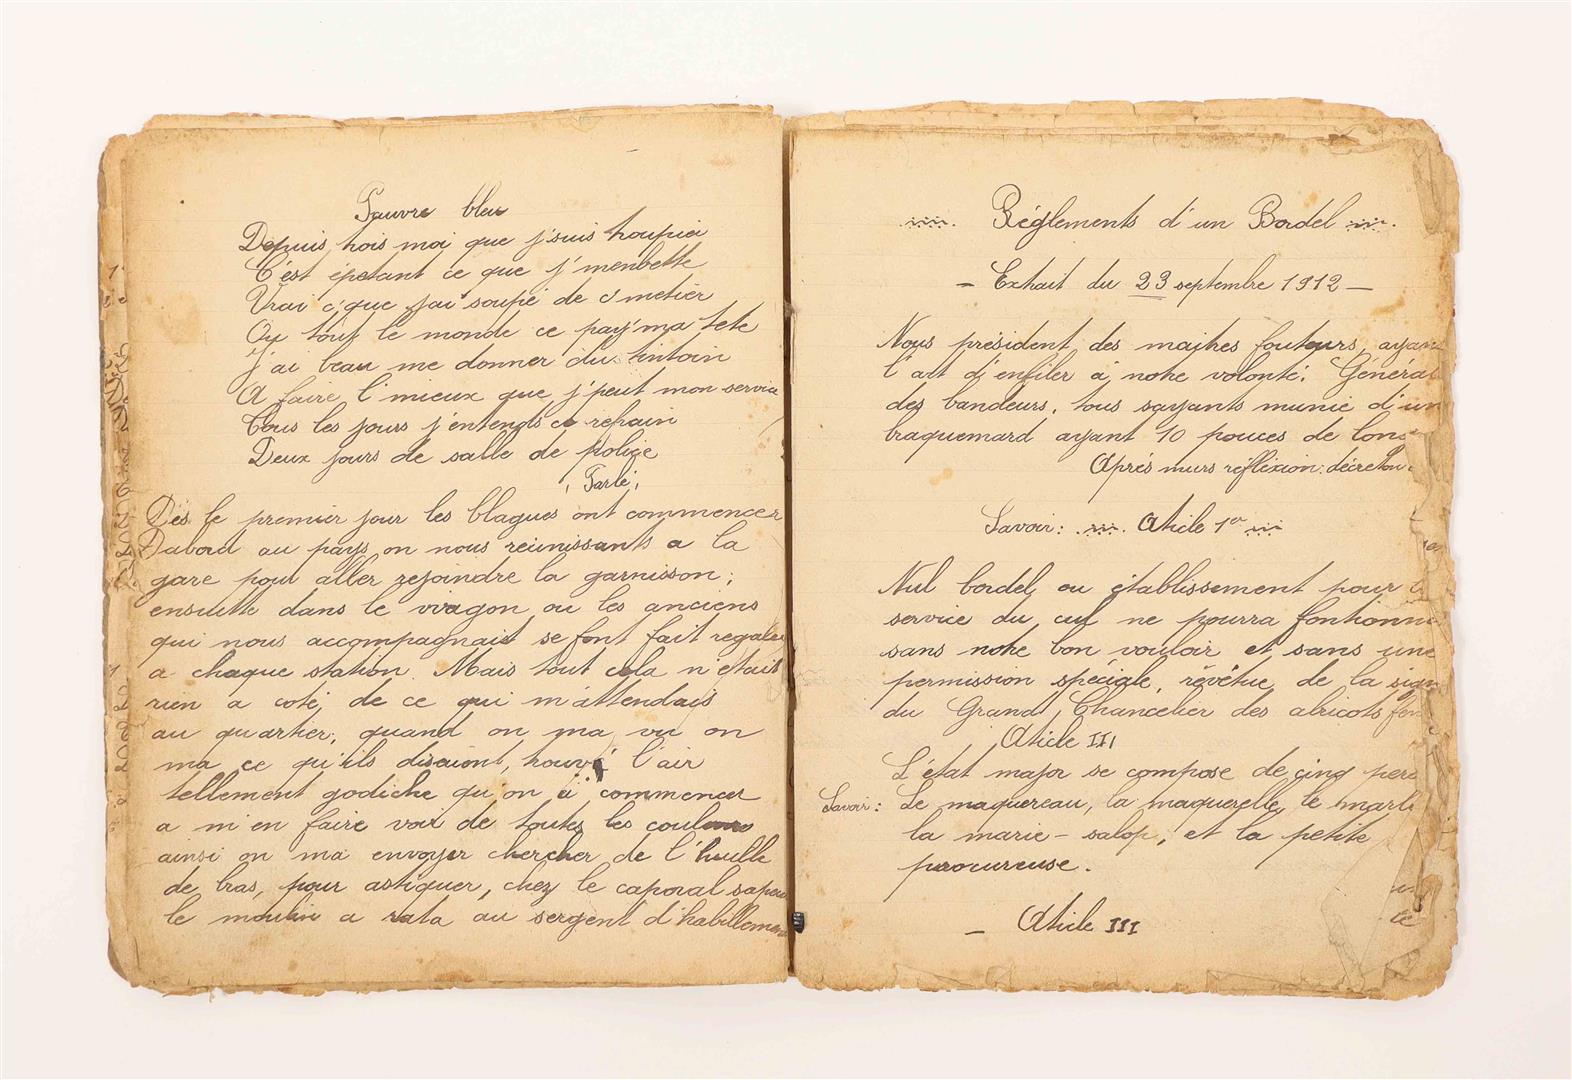 Pauvre bleu
Depuis trois moi que j'suis troupier
C'est épatant ce que j'm'enbette
Vrai c'que j'ai soupé de c'metier
Ou tout le monde ce pay'ma tete
J'ai beau me donner du tintoin
A faire l'mieux que j'peut mon service
Tous les jours j'entends ce refrain
Deux jours de salle de police
Parlé
Dès le premier jour les blagues ont commencer
Dabord au pays on nous réunissants a la
gare pour aller rejoindre la garnisson;
ensuitte dans le vwagon ou les anciens
qui nous accompagnait se font fait regaler
a chaque station. Mais tout cela n'était
rien a coté, de ce qui m'attendais
au quartier, quand on ma vu on
ma ce qu'ils disaiont, trouvé l'air
tellement godiche qu'on à commencer
a m'en faire voir de toutes les couleurs
ainsi on ma envoyer chercher de l'huille
de bras, pour astiquer, chez le caporal sapeur
le moulin a rata au sergent d'habillement
Réglements d'un Bordel
- Extrait du 23 septembre 1912 -
Nous président des maitres fouteurs, ayan
l'art d'enfiler à notre volonté. Général
des bandeurs, tous sayants munie d'un
braquemard ayant 10 pouces de long
Après murs réflexion: décreton
Savoir: Aticle 1er
Nul bordel, ou établissement pour
service du cul ne pourra fontionn
sans notre bon vouloir et sans une
permission spéciale, révêtue de la sign
du Grand Chancelier des abricots fen
Aticle III
L'état major se compose de cinq pers
Savoir: Le maquereau, la maquerelle, le marl
la marie-salop, et la petite
procureuse.
- Aticle III